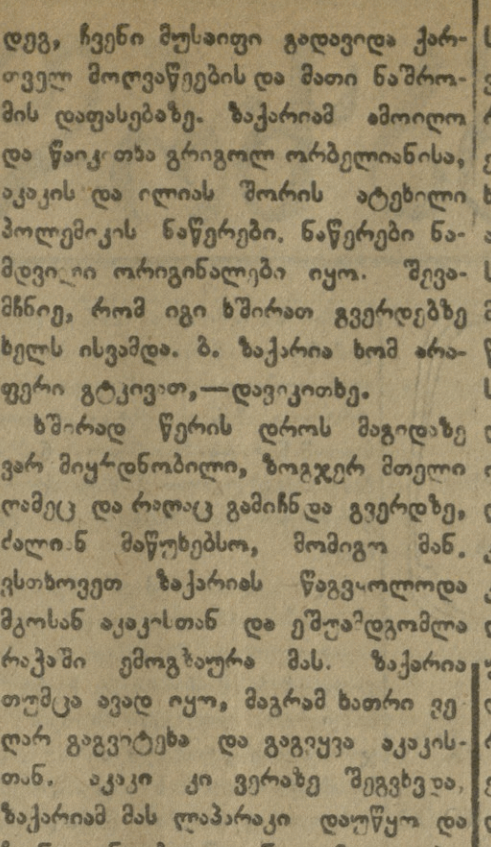 დეგ, ჩვენი მუსაიფი გადავიდა ქარ-
თველ მოღვაწეების და მათი ნაშრო-
მის დაფასებაზე. ზაქარიამ ამოიღო
და წაიკითხა გრიგოლ ორბელიანისა,
აკაკის და ილიას შორის ატეხილი
პოლემიკის ნაწერები. ნაწერები ნა-
მდვილი ორიგინალები იყო. შევა-
მჩნიე, რომ იგი ხშირათ გვერდებზე
ხელს ისვამდა. ბ. ზაქარია ხომ არა-
ფერი გტკივათ,—დავიკითხე.
ხშირად წერის დროს მაგიდაზე
ვარ მიყრდნობილი, ზოგჯერ მთელი
ღამეც და რაღაც გამიჩნდა გვერდზე,
ძალიან მაწუხებსო, მომიგო მან.
ვსთხოვეთ ზაქარიას წაგვყოლოდა
მგოსან აკაკისთან და ეშუამდგომლა
რაჭაში ემოგზაურა მას. ზაქარია
თუმცა ავად იყო, მაგრამ ხათრი ვე
ღარ გაგვიტეხა და გაგვყვა აკაკის-
თან. აკაკი კი ვერაზე შეგვხვდა,
ზაქარიამ მას ლაპარაკი დაუწყო და